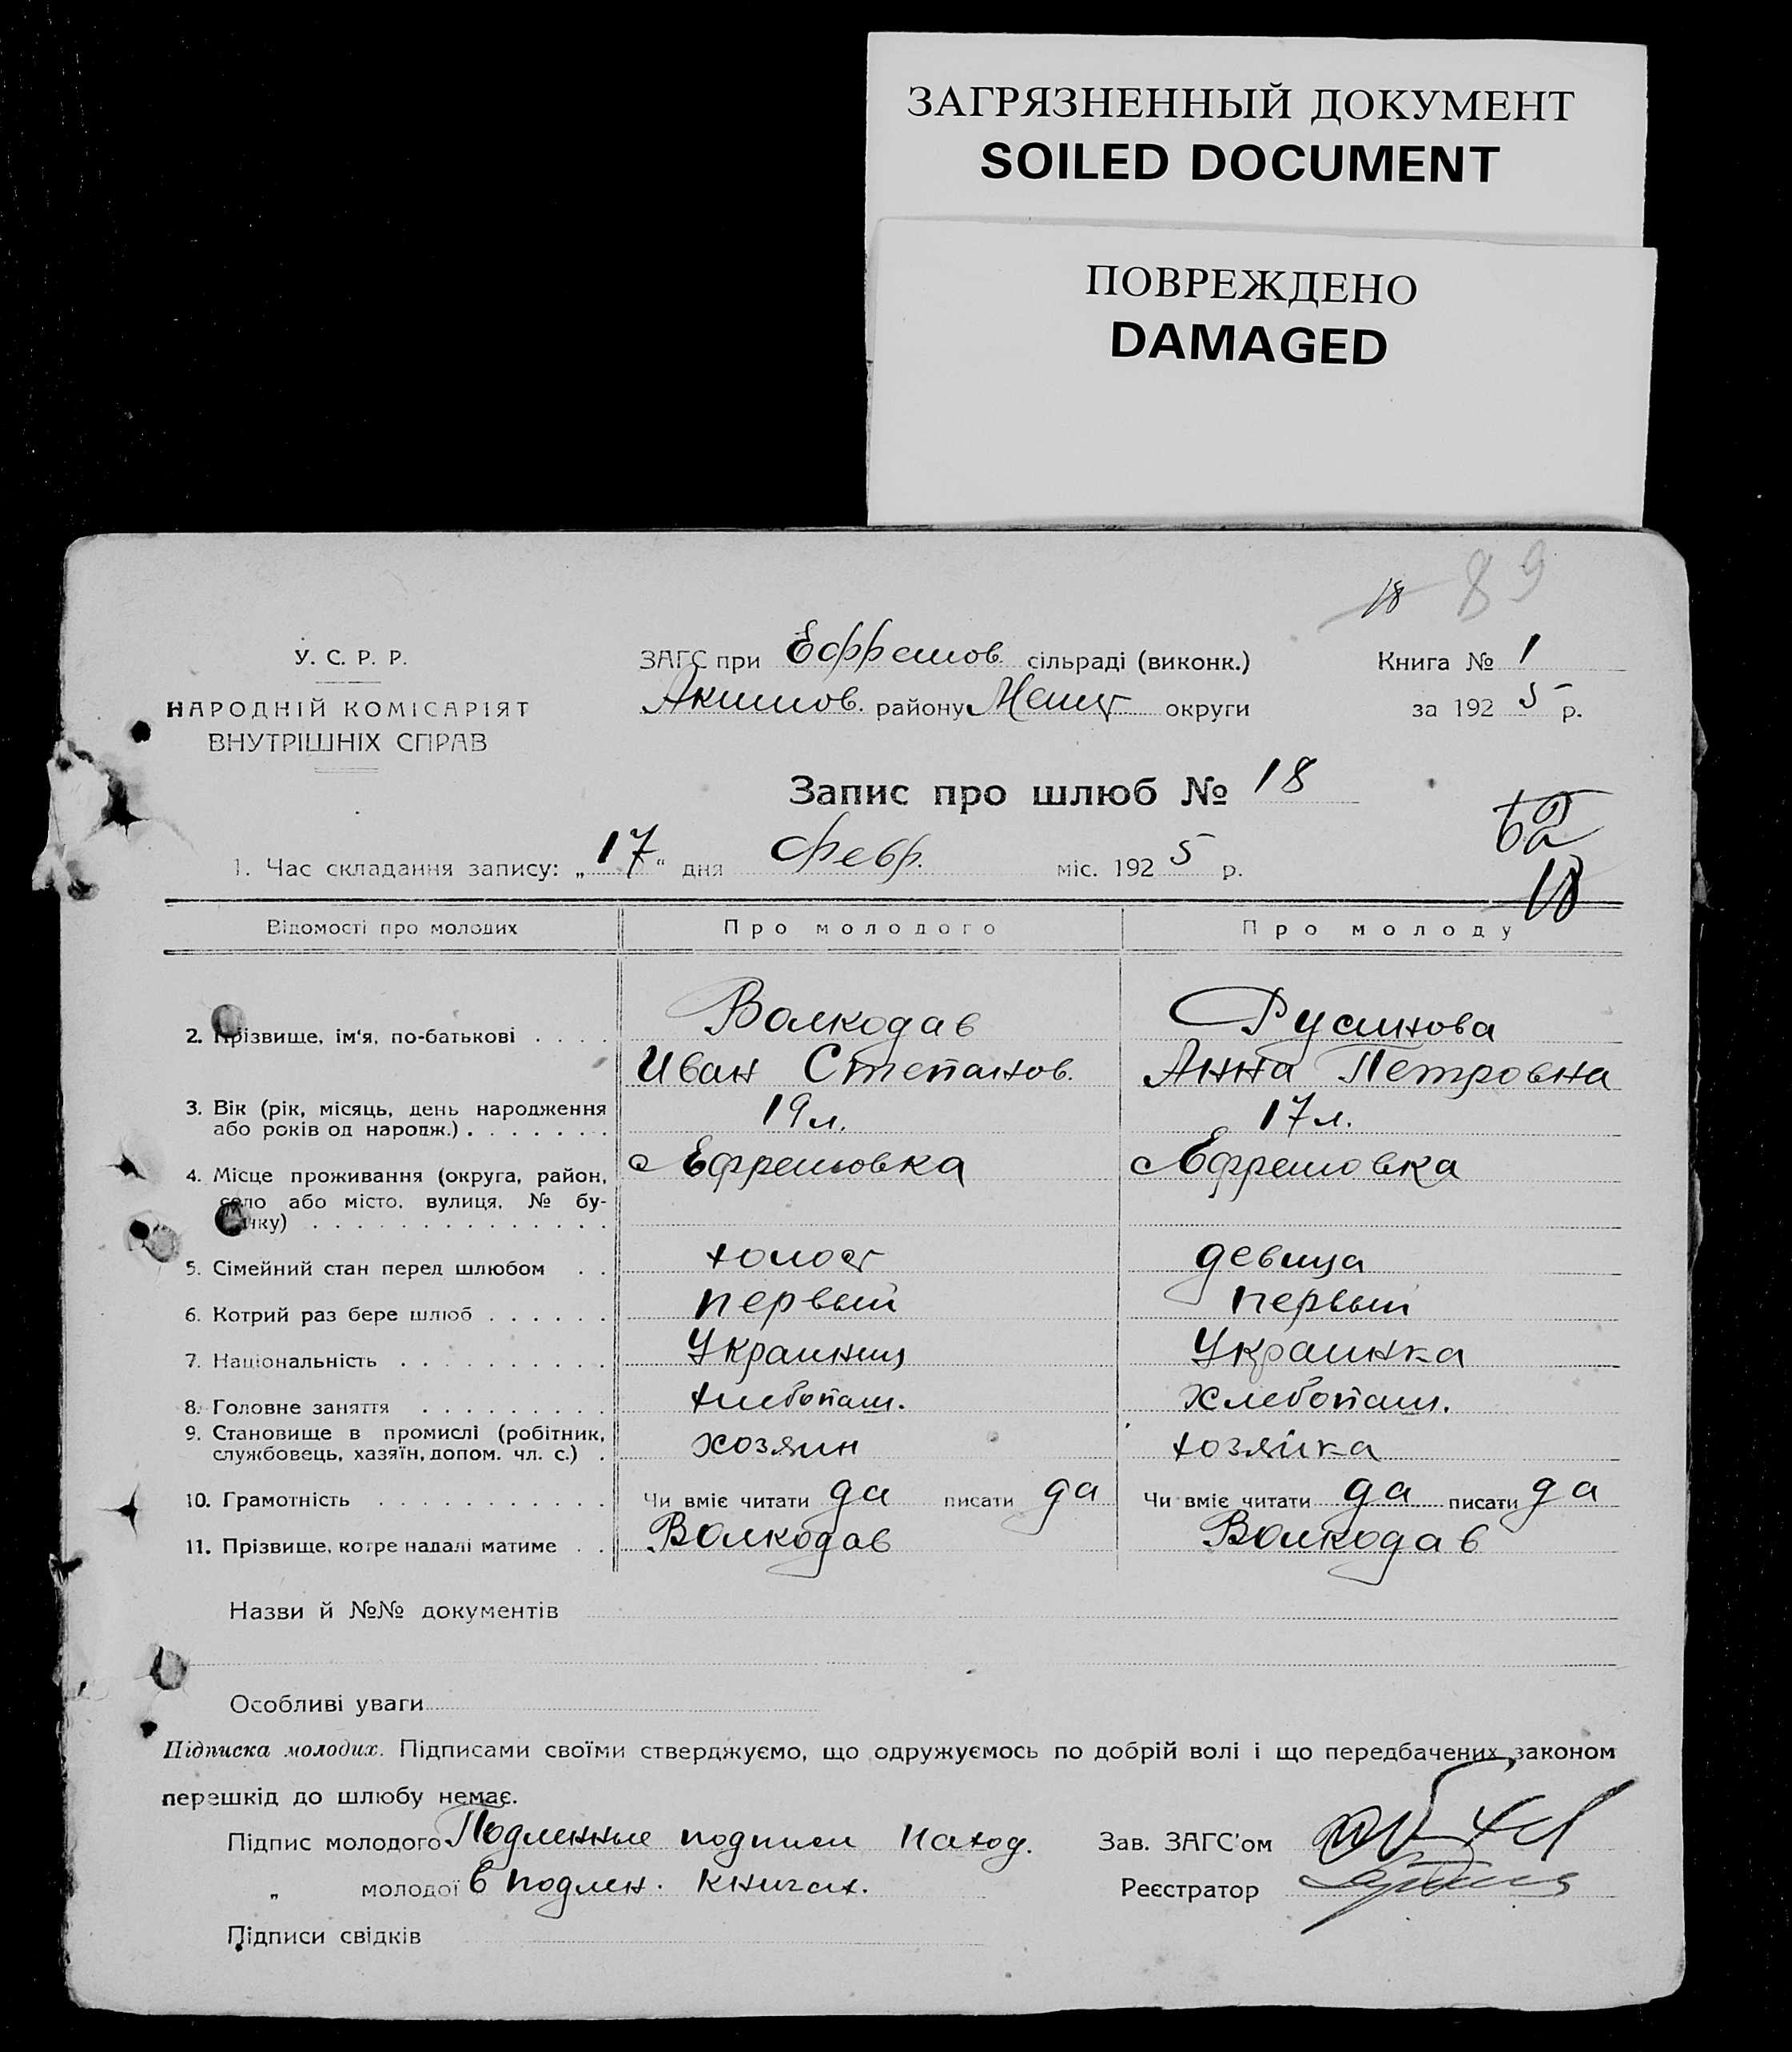 ЗАГРЯЗНЕННЫЙ ДОКУМЕНТ
SOILED DOCUMENT
ПОВРЕЖДЕНО
DAMAGED
18 89
У. С. Р. Р.
НАРОДНІЙ КОМІСАРІЯТ
ВНУТРІШНІХ СПРАВ
ЗАГС при Ефремов. сільраді (виконк.)
Акимов. району Мелит округи
Книга № 1
за 1925 р.
Запис про шлюб № 18
62
18
1. Час складання запису: „17“ дня Февр. міс. 1925 р.
Відомості про молодих Про молодого Про молоду
2. Прізвище, ім‘я, по-батькові . . . . Волкодав Русинова
Иван Степанов. Анна Петровна
3. Вік (рік, місяць, день народження
або років од народж.) . . . . . . . 19 л. 17 л.
4. Місце проживання (округа, район, Ефремовка Ефремовка
село або місто, вулиця, № бу-
динку) . . . . . . . . . . . . . .
5. Сімейний стан перед шлюбом . . холост девица
6. Котрий раз бере шлюб . . . . . . первый первый
7. Національність . . . . . . . . . . Украинец Украинка
8. Головне заняття . . . . . . . . . хлебопаш. хлебопаш.
9. Становище в промислі (робітник,
службовець, хазяїн, допом. чл. с.) . хозяин хозяйка
10. Грамотність . . . . . . . . . . . Чи вміє читати да писати да Чи вміє читати да писати да
11. Прізвище, котре надалі матиме . . Волкодав Волкодав
Назви й №№ документів
Особливі уваги
Підписка молодих. Підписами своїми стверджуємо, що одружуємось по добрій волі і що передбачених законом
перешкід до шлюбу немає.
Підпис молодого Подленные подписи наход. Зав. ЗАГС'ом
„ молодої в подлен. книгах. Реєстратор
Підписи свідків